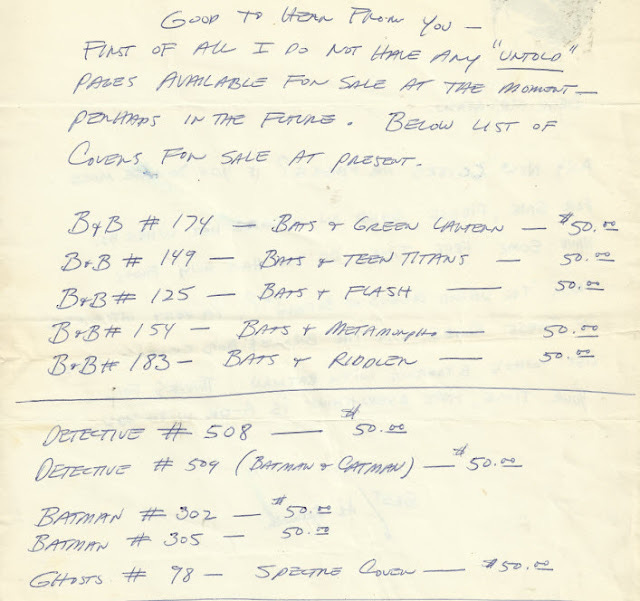 GOOD TO HEAR FROM YOU —
FIRST OF ALL I DO NOT HAVE ANY "UNTOLD"
PAGES AVAILABLE FOR SALE AT THE MOMENT —
PERHAPS IN THE FUTURE. BELOW LIST OF
COVERS FOR SALE AT PRESENT.
B&B # 174 — BATS & GREEN LANTERN — $50.00
B&B # 149 — BATS & TEEN TITANS — 50.00
B&B # 125 — BATS & FLASH — 50.00
B&B # 154 — BATS & METAMORPHO — 50.00
B&B # 183 — BATS & RIDDLER — 50.00
DETECTIVE # 508 — $50.00
DETECTIVE # 509 (BATMAN & CATMAN) — $50.00
BATMAN # 302 — $50.00
BATMAN # 305 — 50.00
GHOSTS # 98 — SPECTRE COVER — $50.00